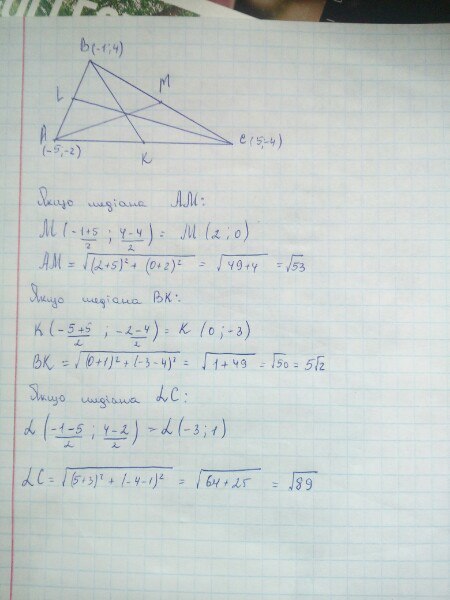 B(-1;4)
L
M
A
(-5;-2)
K
C(5;-4)
Якщо медіана AM:
M(\frac{-1+5}{2}; \frac{4-4}{2}) = M(2;0)
AM = √((2+5)² + (0+2)²) = √(49+4) = √53
Якщо медіана BK:
K(\frac{-5+5}{2}; \frac{-2-4}{2}) = K(0;-3)
BK = √((0+1)² + (-3-4)²) = √(1+49) = √50 = 5√2
Якщо медіана LC:
L(\frac{-1-5}{2}; \frac{4-2}{2}) = L(-3;1)
LC = √((5+3)² + (-4-1)²) = √(64+25) = √89